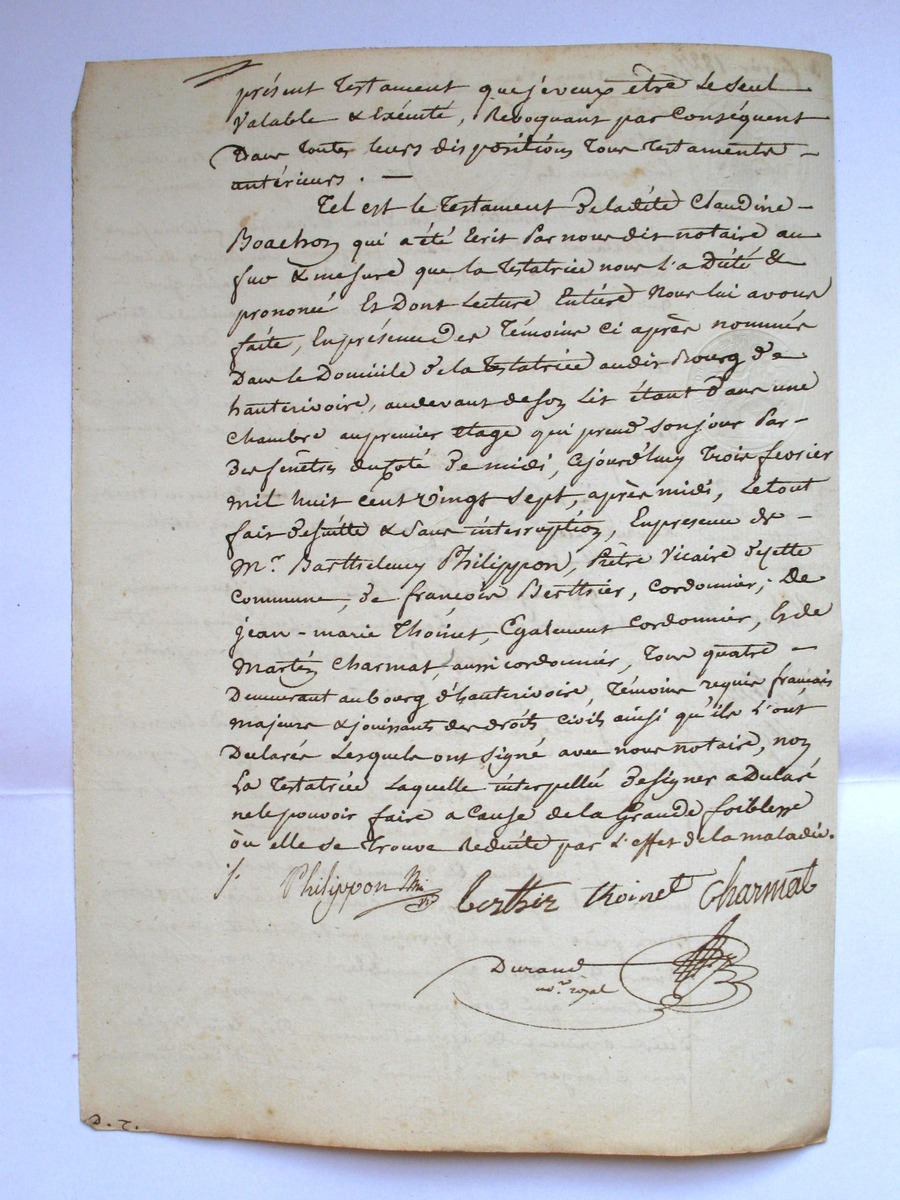 présent Testament que je veux être le seul
Valable & Exécuté, Revoquant par Conséquent
Dans toutes leurs dispositions Tous Testaments –
antérieurs. —
Tel est le Testament de ladite Claudine –
Boachon qui a été Ecrit Par nous dit notaire au
fur & mesure que la Testatrice nous l'a Dicté &
prononcé Et Dont Lecture Entière Nous lui avons
faite, En présence des Témoins Ci après nommés
Dans le Domicile de la Testatrice audit Bourg de
hauterivoire, au devant de son Lit étant dans une
Chambre au premier étage qui prend son jour Par –
des fenêtres du Coté de midi, Cejourd'huy Trois fevrier
mil huit cent vingt sept, après midi, Le tout
fait de suitte & sans interruption, En presence de –
Mr. Barthelemy Philippon, Prêtre Vicaire de cette
Commune, de françois Berthier, Cordonnier; De
jean-marie Thoinet, Egalement Cordonnier, & de
Martin Charmat, aussi cordonnier, Tous quatre –
Demeurant au bourg d'hauterivoire, Témoins requis français
majeurs & jouissants des droits civils ainsi qu'ils L'ont
Déclarés Lesquels ont signé avec nous notaire, non
La Testatrice Laquelle interpellée de signer a Déclaré
ne le pouvoir faire a Cause de la Grande foiblesse
où elle se Trouve Reduite par L'effet de la maladie.
Philippon berthier thoinet Charmat
Durand
nore. royal
D. T.